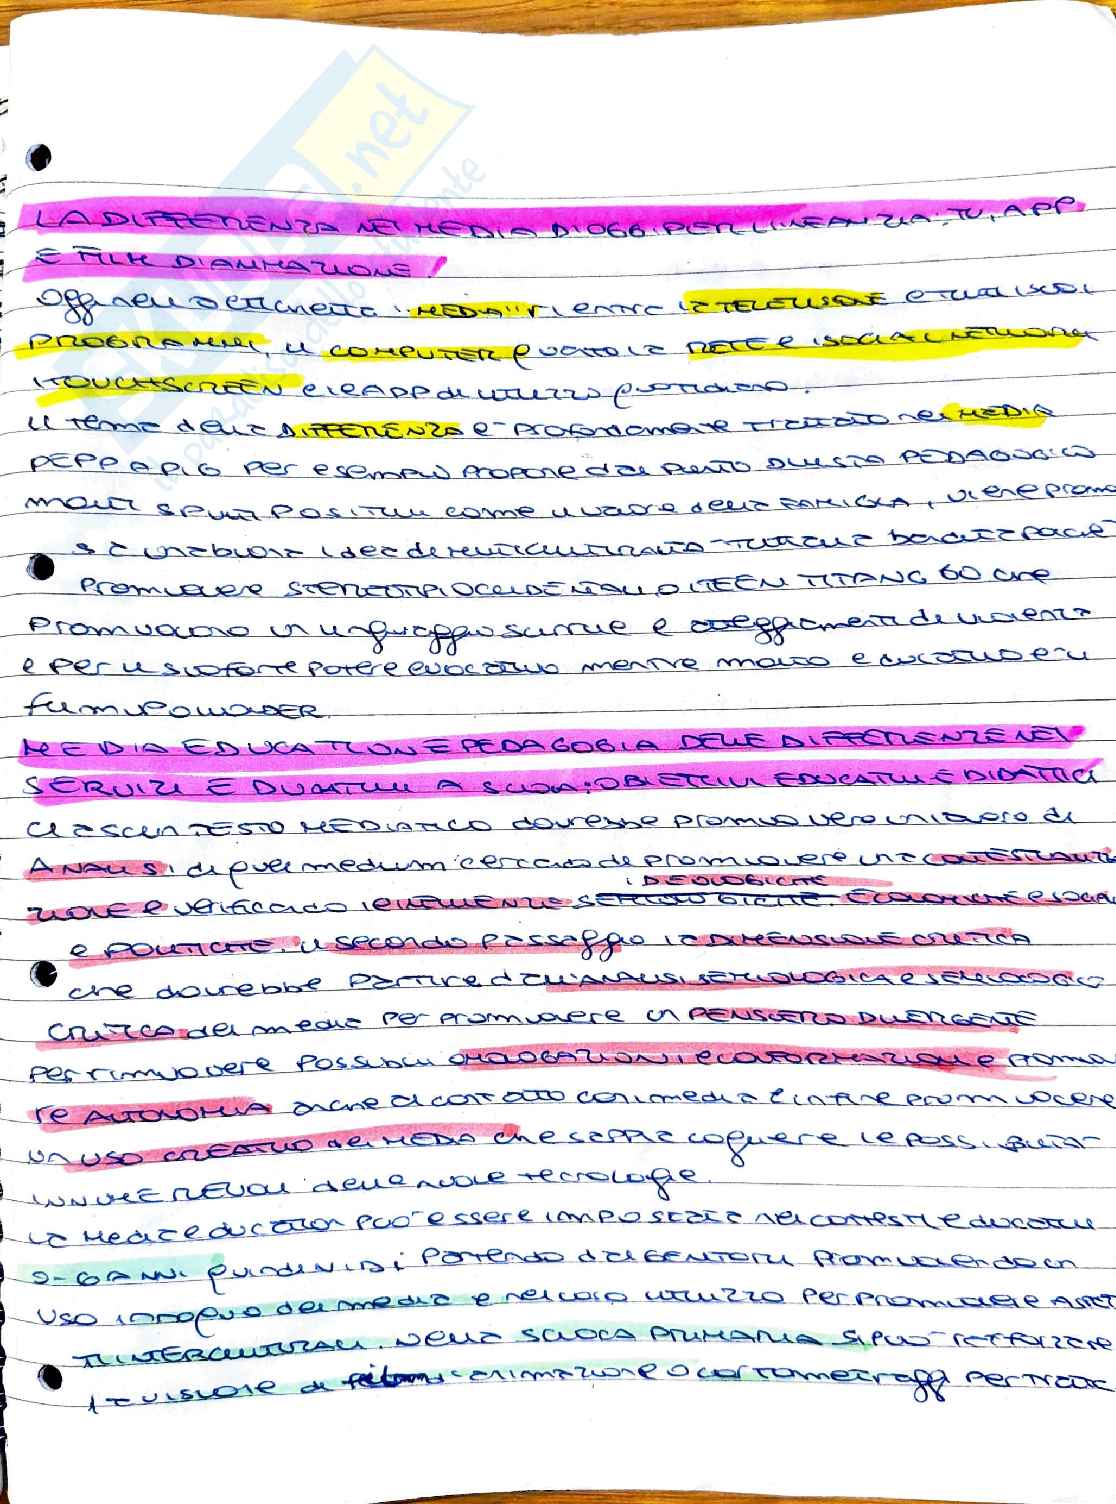 LA DIFFERENZA NEI MEDIA DI OGGI PER L'INFANZIA: TV, APP
E FILM D'ANIMAZIONE
Oggi nell'etichetta "MEDIA" rientra la TELEVISIONE e tutti i suoi
PROGRAMMI, il COMPUTER quanto la RETE e i SOCIAL NETWORK
I TOUCHSCREEN e le APP di utilizzo quotidiano.
Il tema della DIFFERENZA è profondamente trattato nei MEDIA
PEPPA PIG per esempio propone dal punto di vista PEDAGOGICO
molti spunti POSITIVI come il valore della FAMIGLIA, viene promo
ssa una buona idea di multiculturalità tuttavia
promuovere STEREOTIPI OCCIDENTALI, O I TEEN TITANS GO che
promuovono un linguaggio scurrile e atteggiamenti di violenza
e per il suo forte potere evocativo mentre molto educativo è il
film
MEDIA EDUCATION E PEDAGOGIA DELLE DIFFERENZE NEI
SERVIZI EDUCATIVI A SCUOLA: OBIETTIVI EDUCATIVI E DIDATTICI
Ciascun TESTO MEDIATICO dovrebbe promuovere un lavoro di
ANALISI di quel medium cercando di promuovere una CONTESTUALIZZA
ZIONE e verificando le INFLUENZE IDEOLOGICHE, ECONOMICHE e SOCIALI
e POLITICHE. Il secondo passaggio la DIMENSIONE CRITICA
che dovrebbe partire dall'ANALISI SEMIOLOGICA e SEMIOLOGICO
CRITICA dei media per promuovere un PENSIERO DIVERGENTE
per rimuovere possibili OMOLOGAZIONI e CONFORMAZIONI e promuove
re AUTONOMIA anche a contatto con i media e infine promuovere
un USO CREATIVO dei MEDIA che sappia cogliere le POSSIBILITÀ
INNUMEREVOLI delle nuove tecnologie.
La media education può essere impostata nei contesti educativi
0-6 ANNI quindi nidi partendo dai GENITORI promuovendo un
uso idoneo dei media e nel loro utilizzo per promuovere ASPET
TI INTERCULTURALI. Nella SCUOLA PRIMARIA si può rafforzare
la visione di film d'animazione o cortometraggi per tratta